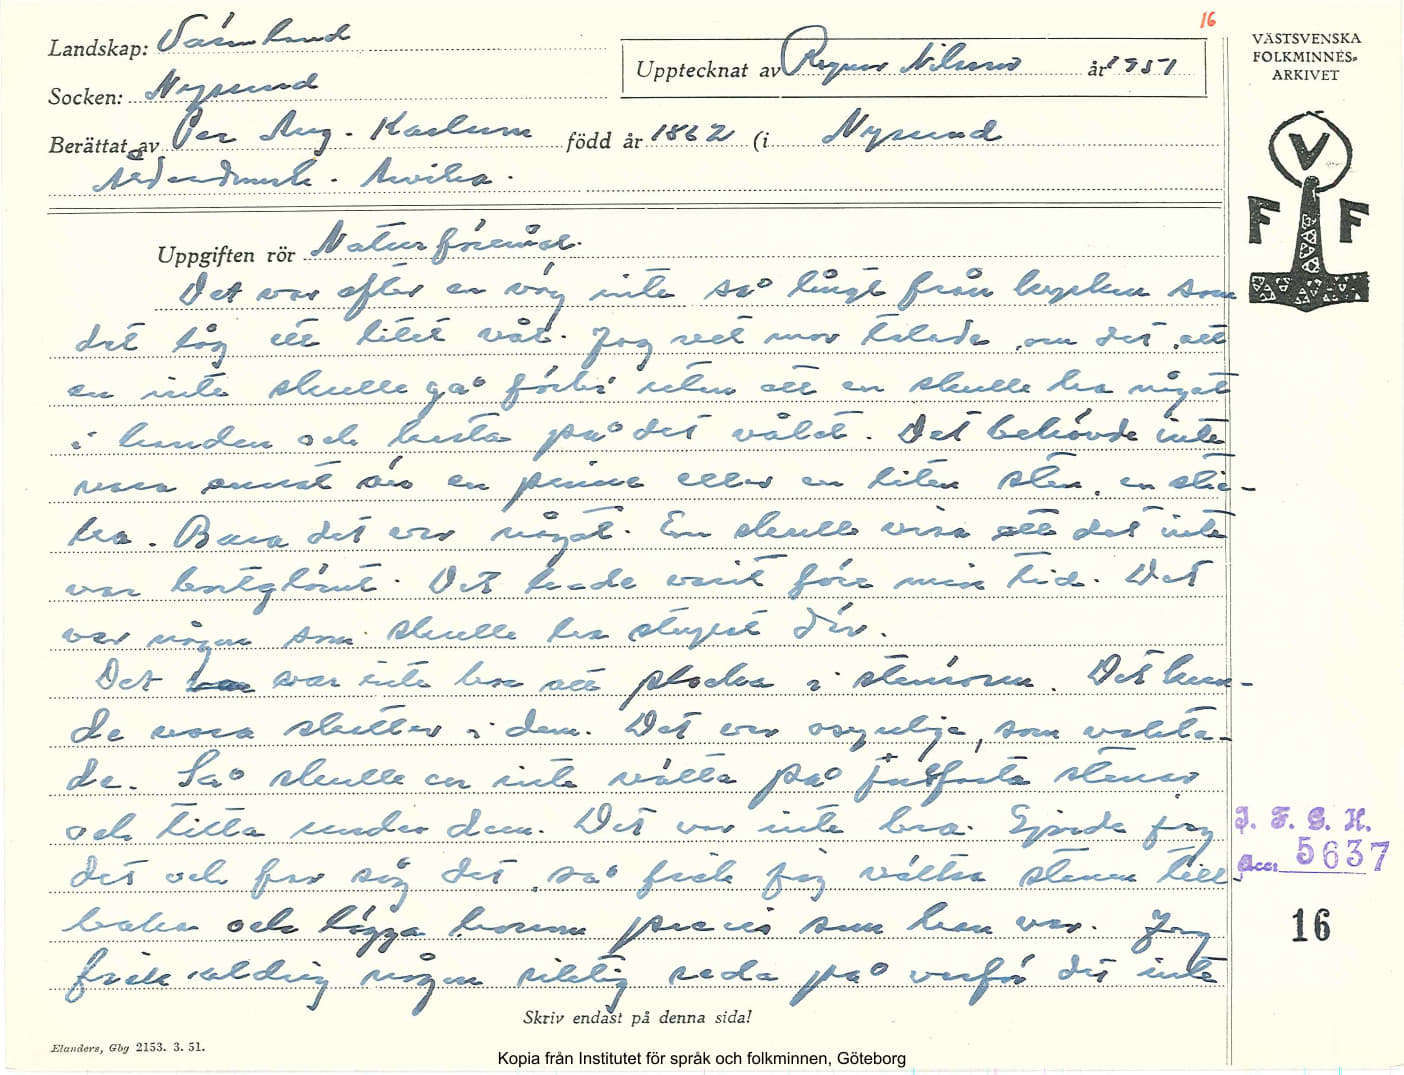 16
Landskap: Värmland
Upptecknat av Ragnar Nilsson år 1951
VÄSTSVENSKA
FOLKMINNES-
ARKIVET
Socken: Nysund
Berättat av Per Aug. Karlsson född år 1862 (i Nysund
Arvika.
V
F F
Uppgiften rör Naturföremål.
Det var efter en väg inte så långt från kyrkan som
det låg ett litet vål. Jag vet mor talade om det, att
en inte skulle gå förbi utan att en skulle ha något
i handen och kasta på det vålet. Det behövde inte
vara annat än en pinne eller en liten sten, en stic-
ka. Bara det var något. En skulle visa att det inte
var bortglömt. Det hade varit före min tid. Det
var någon som skulle ha stupat där.
Det var inte bra att plocka i stenrören. Det kun-
de vara skatter i dem. Det var osynliga, som vakta-
de. Så skulle en inte välta på jordfasta stenar
och titta under dem. Det var inte bra. Gjorde jag
det och far såg det, så fick jag välta stenen till-
baka och lägga honom precis som han var. Jag
fick aldrig någon riktig reda på varför det inte
J. F. G. H.
Acc. 5637
16
Skriv endast på denna sida!
Elanders, Gbg 2153. 3. 51.
Kopia från Institutet för språk och folkminnen, Göteborg